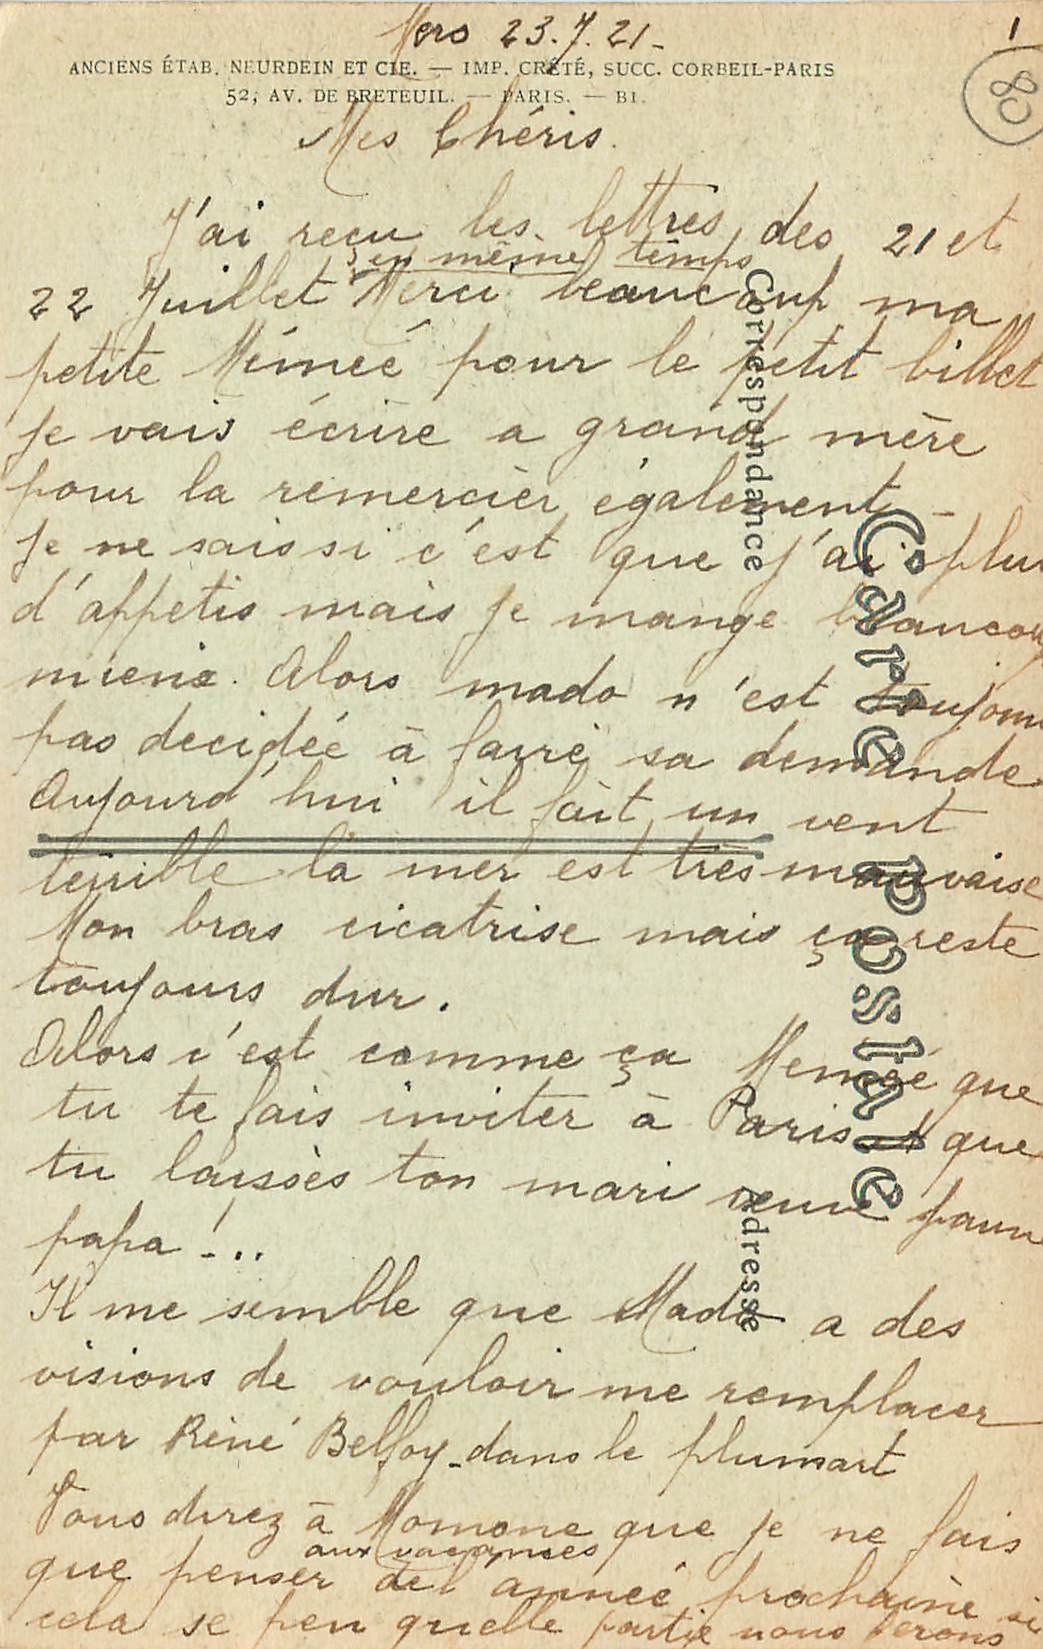 Mers 23.7.21-
1
80
ANCIENS ÉTAB. NEURDEIN ET CIE. — IMP. CRÉTÉ, SUCC. CORBEIL-PARIS
52, AV. DE BRETEUIL. — PARIS. — BI.
Mes Chéris.
J'ai reçu les lettres des 21 et
en même temps
22 Juillet Merci beaucoup ma
petite Mémeé pour le petit billet
je vais écrire a grand mère
pour la remercier également -
Je ne sais si c'est que j'ai plus
d'appetis mais je mange beaucoup
mieux. Alors mado n'est toujours
pas decidée à faire sa demande
Aujourd'hui il fait un vent
terrible la mer est très mauvaise
Mon bras cicatrise mais ça reste
toujours dur.
Alors c'est comme ça que
tu te fais inviter à Paris et que
tu laisses ton mari veuve pauvre
papa !...
Il me semble que Mado a des
visions de vouloir me remplacer
par Réné Belfoy dans le plumart
Vous direz à Momone que je ne fais
aux vacances
que penser de l'anneé prochaine si
cela se peu quelle partie nous ferons
Correspondance
Carte Postale
Adresse